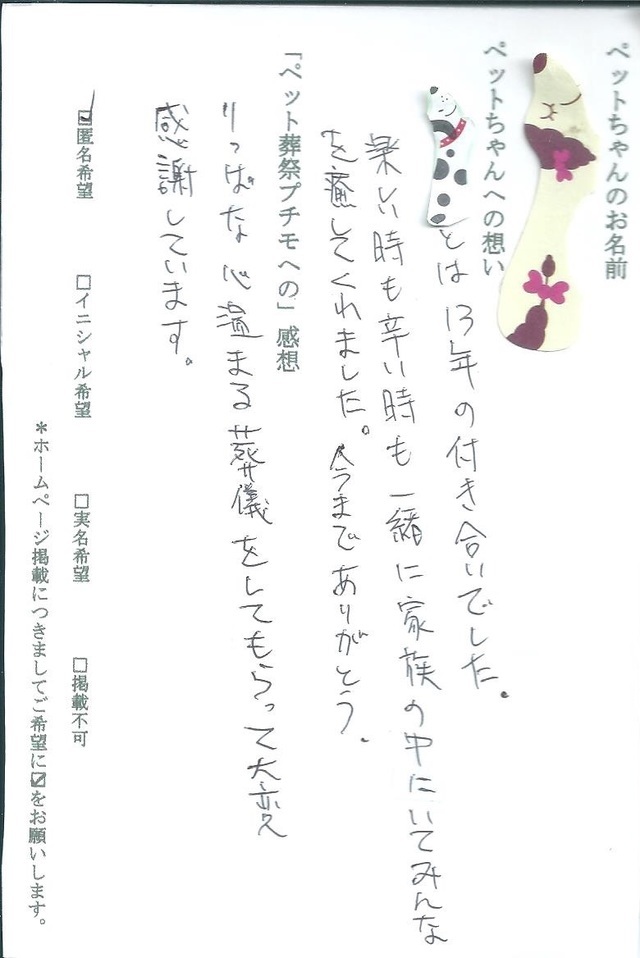 ペットちゃんのお名前
ペットちゃんへの想い
とは13年の付き合いでした。
楽しい時も辛い時も一緒に家族の中にいてみんな
を癒してくれました。今までありがとう。
「ペット葬祭プチモへの」感想
りっぱな心温まる葬儀をしてもらって大変
感謝しています。
☑匿名希望 □イニシャル希望 □実名希望 □掲載不可
＊ホームページ掲載につきましてご希望に☑をお願いします。